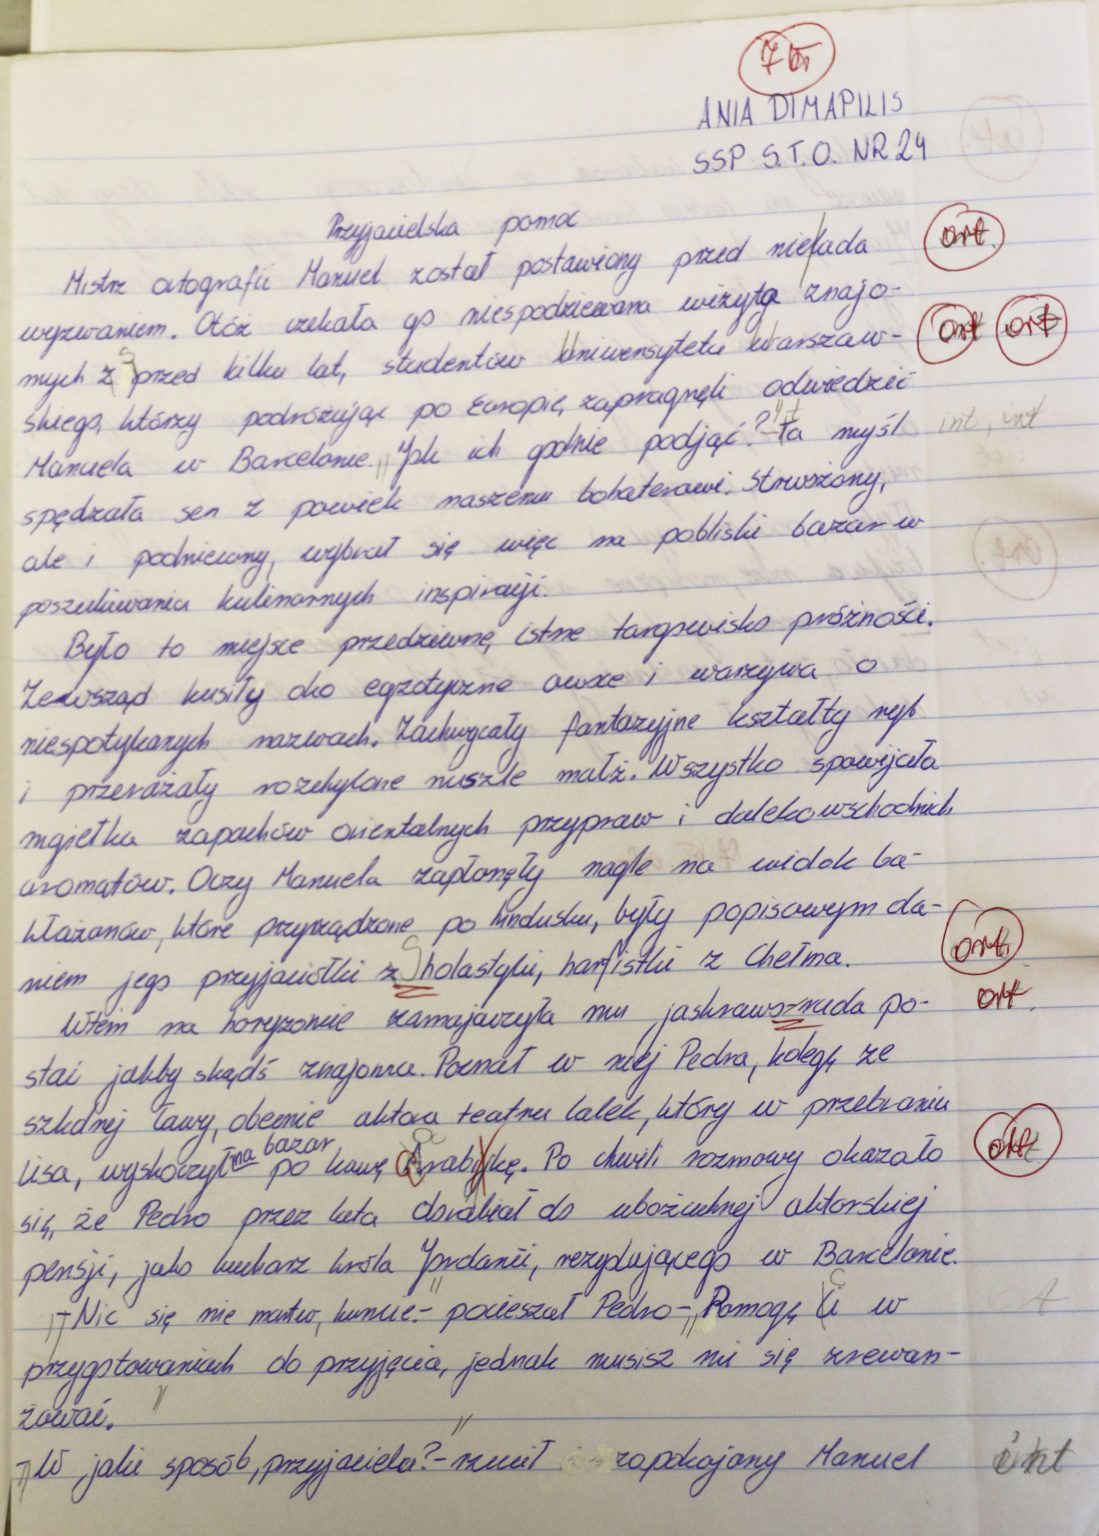 7 bł
ANIA DIMAPILIS
SSP S.T.O. NR 24
Przyjacielska pomoc
Mistrz ortografii Manuel został postawiony przed nielada ort.
wyzwaniem. Otóż czekała go niespodziewana wizyta znajo-
mych z przed kilku lat, studentów Uniwersytetu Warszaw- ort ort
skiego, którzy podróżując po Europie, zapragnęli odwiedzić
Manuela w Barcelonie. "Jak ich godnie podjąć?"- Ta myśl int, int
spędzała sen z powiek naszemu bohaterowi. Strwożony,
ale i podniecony, wybrał się więc na pobliski bazar w
poszukiwaniu kulinarnych inspiracji.
Było to miejsce przedziwne, istne targowisko próżności.
Zewsząd kusiły oko egzotyczne owoce i warzywa o
niespotykanych nazwach. Zachwycały fantazyjne kształty ryb
i przerażały rozchylone muszle małż. Wszystko spowijała
mgiełka zapachów orientalnych przypraw i dalekowschodnich
aromatów. Oczy Manuela zapłonęły nagle na widok ba-
kłażanów, które przyrządzone po hindusku, były popisowym da-
niem jego przyjaciółki z Sholastyki, harfistki z Chełma. ort.
Wtem na horyzoncie zamajaczyła mu jaskraworuda po- ort.
stać jakby skądś znajoma. Poznał w niej Pedra, kolegę ze
szkolnej ławy, obecnie aktora teatru lalek, który w przebraniu
lisa, wyskoczył na bazar po kawę Arabikę. Po chwili rozmowy okazało ort
się, że Pedro przez lata dorabiał do ubożuchnej aktorskiej
pensji, jako kucharz króla Jordanii, rezydującego w Barcelonie.
"- Nic się nie martw, kumie."- pocieszał Pedro-"Pomogę Ci w
przygotowaniach do przyjęcia, jednak musisz mi się zrewan-
żować."
"- W jaki sposób, przyjacielu?"- rzucił zapokojony Manuel int